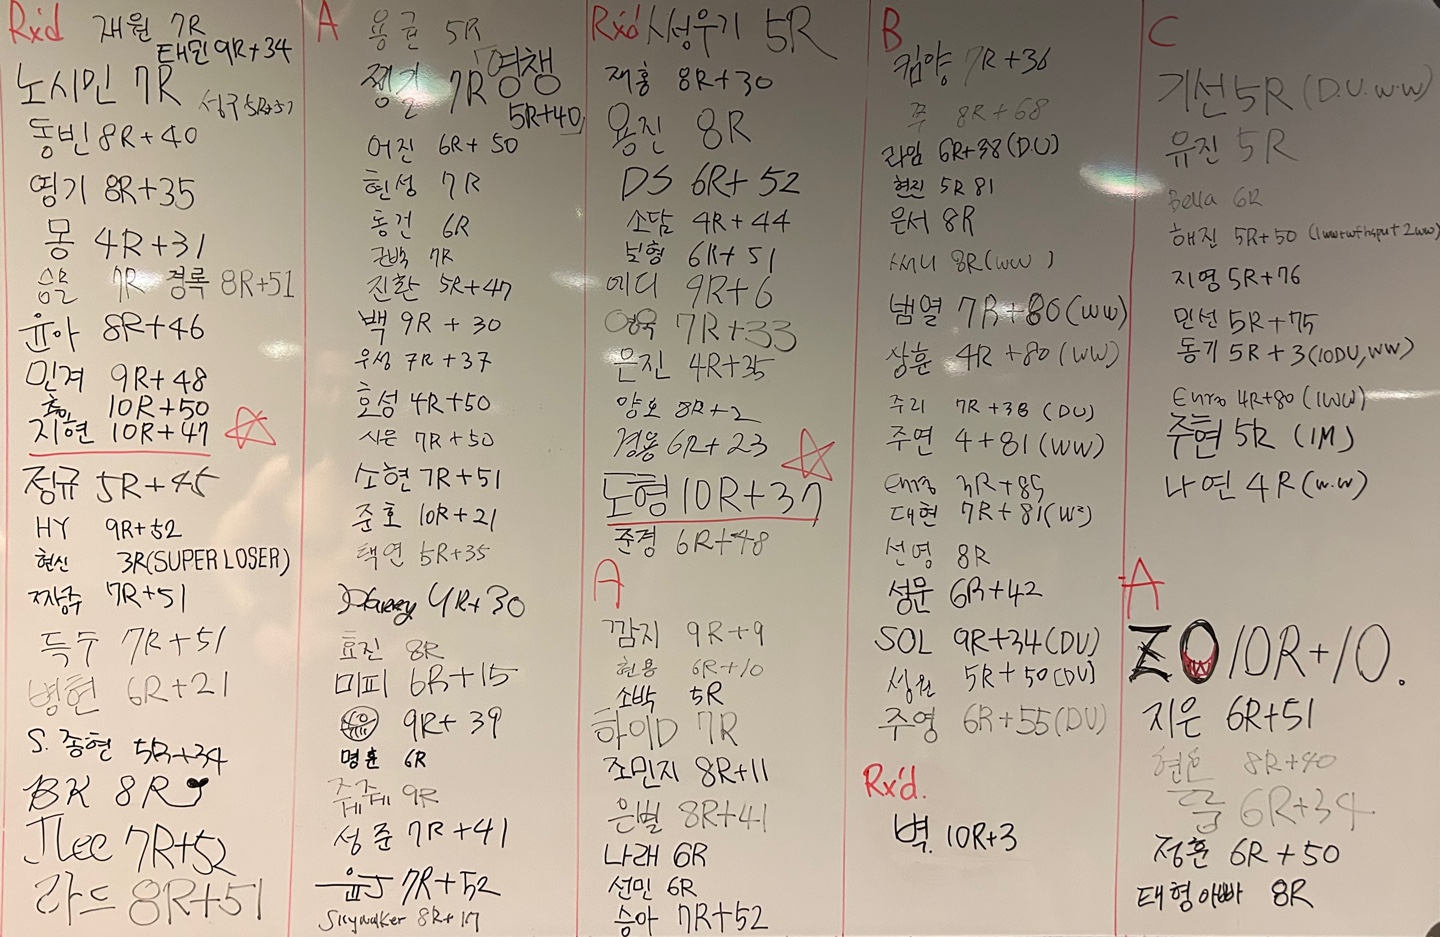 Rx'd
재원 7R
태민 9R+34
노시민 7R
성구 5R+51
동빈 8R+40
영기 8R+35
몽 4R+31
7R
경록 8R+51
윤아 8R+46
민겨 9R+48
10R+50
지현 10R+47
정규 5R+45
HY 9R+52
현신 3R(SUPER LOSER)
7R+51
득수 7R+51
병현 6R+21
S. 종현 5R+34
BK 8R
JLee 7R+52
라드 8R+51
A
용균 5R
쩡길 7R
영챙
5R+40
어진 6R+50
현성 7R
동건 6R
7R
진환 5R+47
백 9R+30
우성 7R+37
호성 4R+50
시은 7R+50
소현 7R+51
준호 10R+21
택연 5R+35
Harry 4R+30
효진 8R
미피 6R+15
9R+39
명훈 6R
쥬쥬
9R
성준 7R+41
윤J 7R+52
Skywalker 8R+17
Rx'd
시성우기 5R
재홍 8R+30
용진 8R
DS 6R+52
소담 4R+44
보형 6R+51
에디 9R+6
7R+33
은진 4R+35
양오 8R+2
경용 6R+23
도형 10R+37
준경 6R+48
A
깜지 9R+9
현용 6R+10
소박 5R
하이D 7R
조민지 8R+11
은별 8R+41
나래 6R
선민 6R
승아 7R+52
B
킴양 7R+36
쭈 8R+68
라임 6R+38(DU)
현진 5R 81
은서 8R
써니 8R(WW)
범열 7R+80(WW)
상훈 4R+80(WW)
주리 7R+38(DU)
주연 4+81(WW)
3R+85
대현 7R+81(W²)
선영 8R
성문 6R+42
SOL 9R+34(DU)
성원 5R+50(DU)
주영 6R+55(DU)
Rx'd.
벽. 10R+3
C
기선 5R (D.U. W.W)
유진 5R
Bella 6R
해진 5R+50
지영 5R+76
민선 5R+75
동기 5R+3(10DU,WW)
4R+80 (1WW)
주현 5R (1M)
나연 4R(W.W)
A
ZO 10R+10.
지은 6R+51
8R+40
6R+34
정훈 6R+50
태형아빠 8R